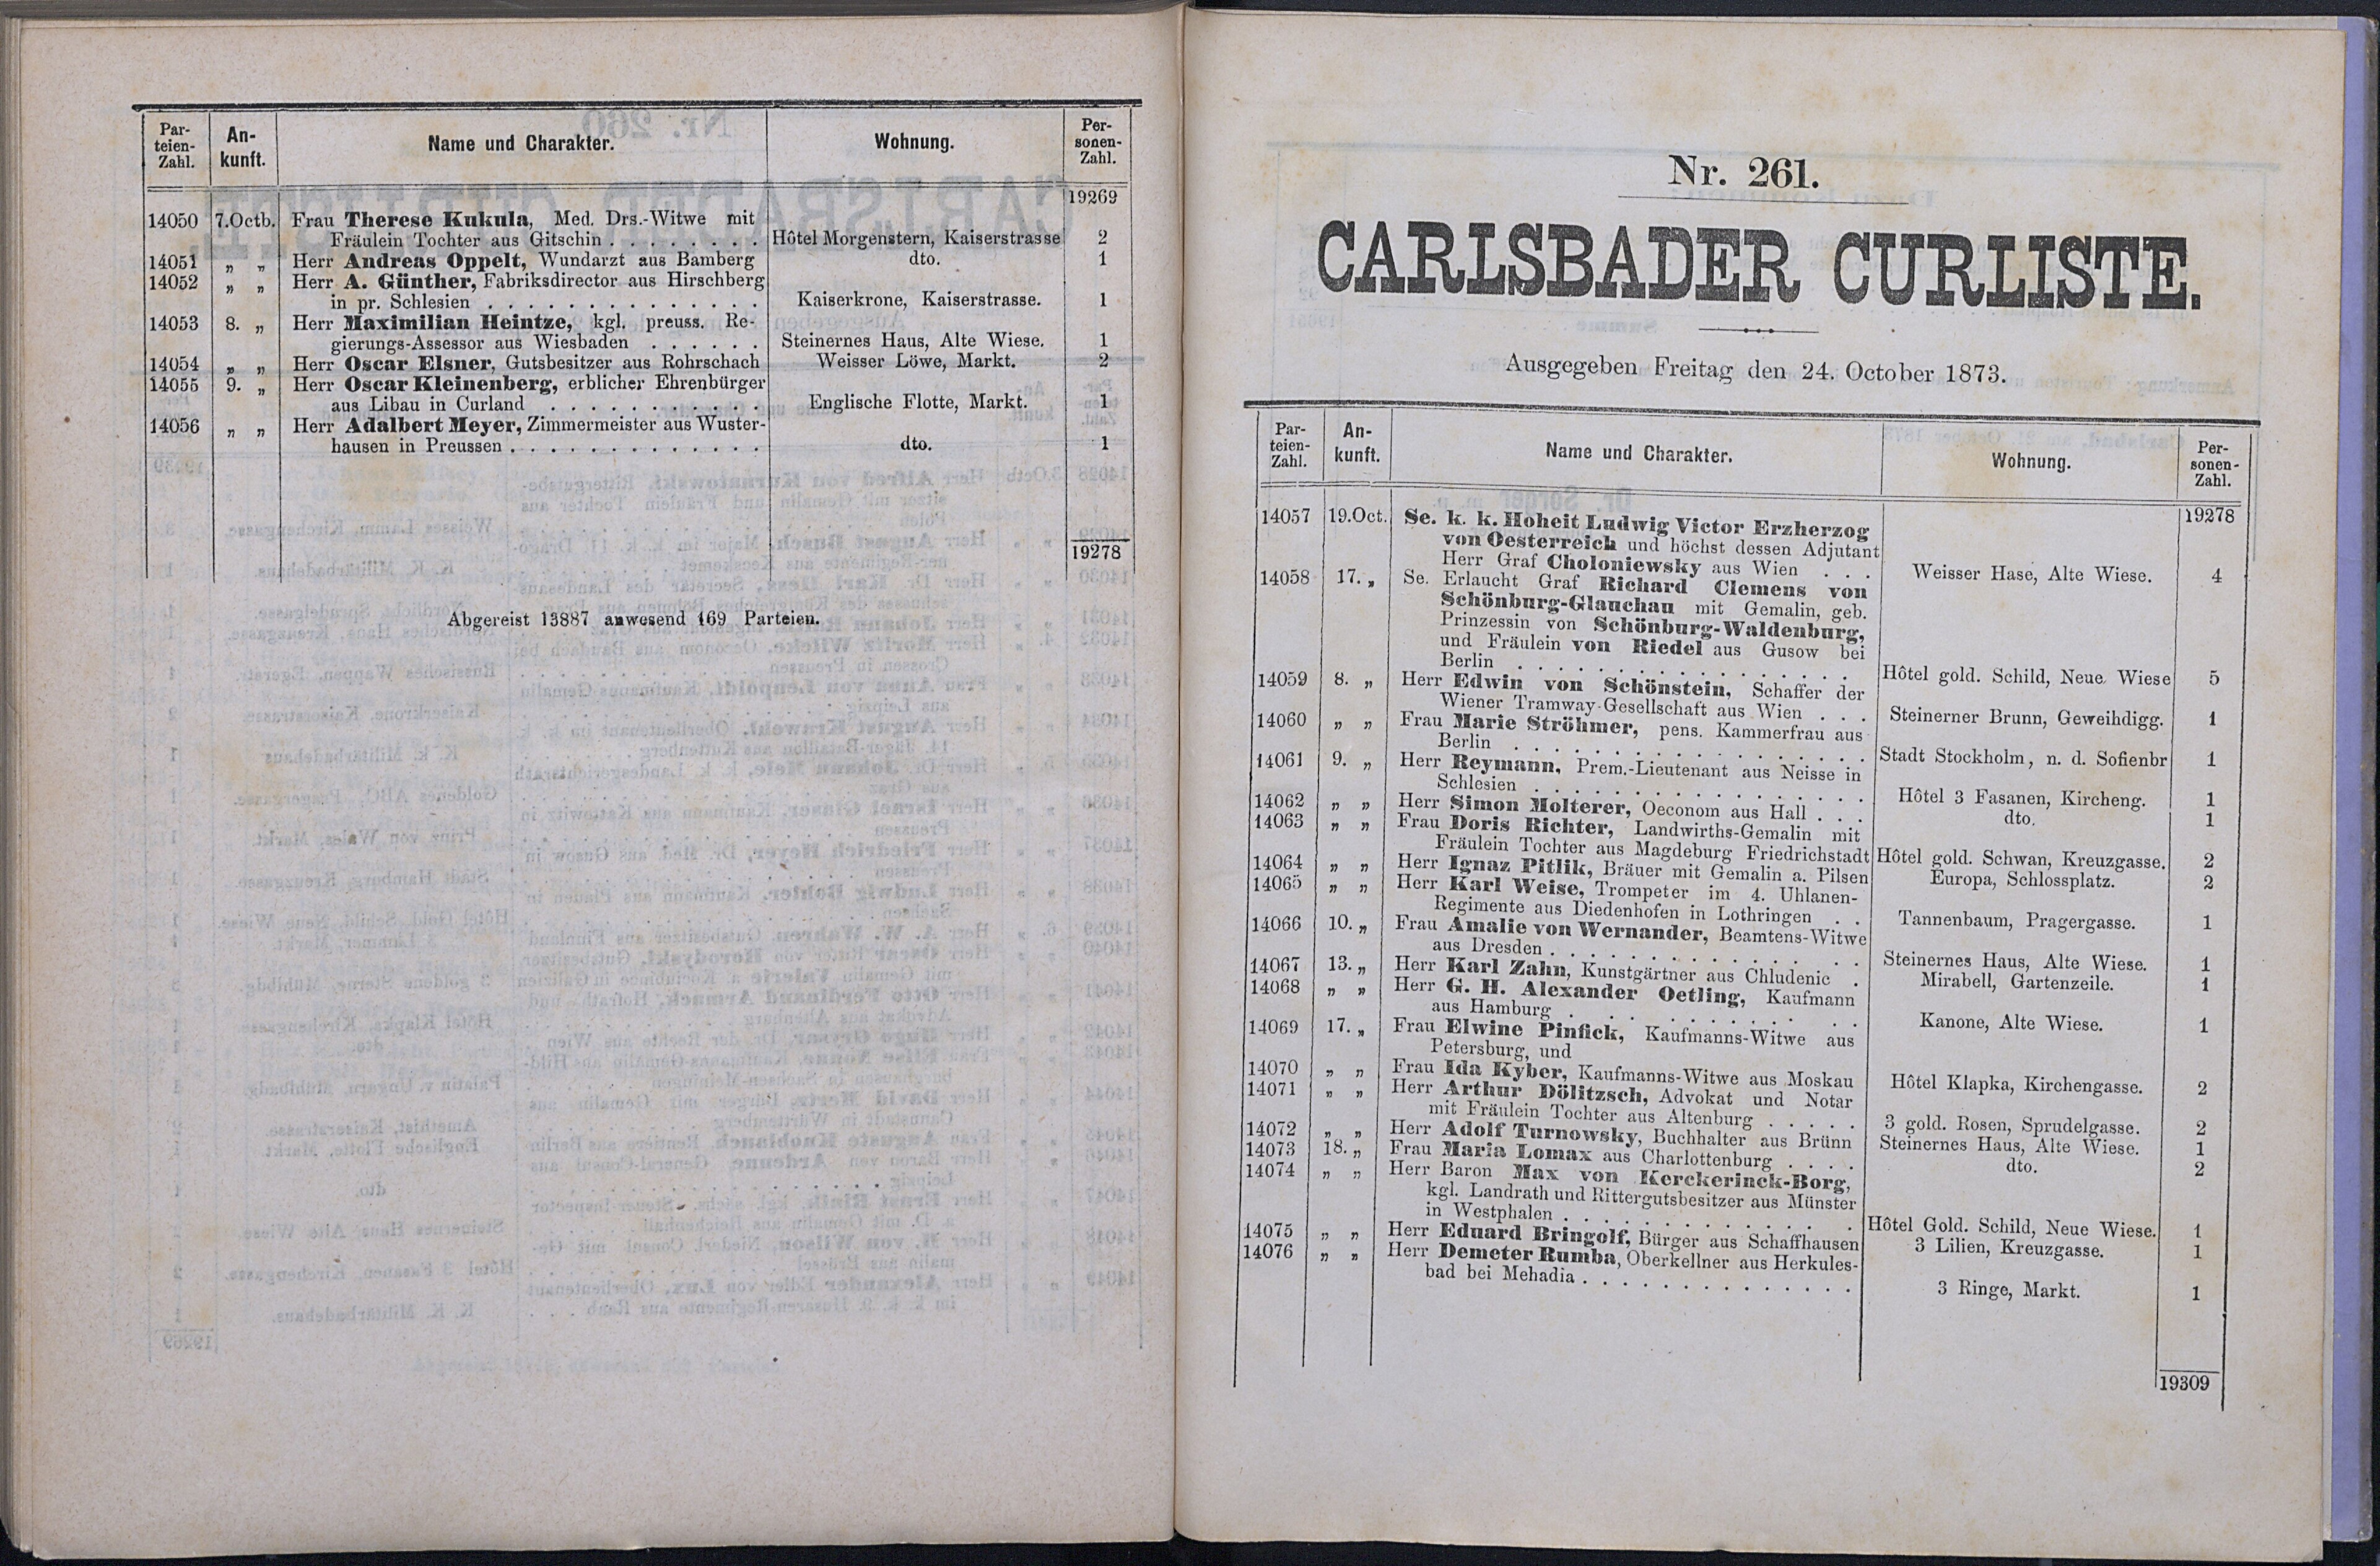 Par-teien-Zahl. An-kunft. Name und Charakter. Wohnung. Per-sonen-Zahl.
19269
14050 7.Octb. Frau Therese Kukula, Med. Drs.-Witwe mit
Fräulein Tochter aus Gitschin . . . . . . . . Hôtel Morgenstern, Kaiserstrasse 2
14051 „ „ Herr Andreas Oppelt, Wundarzt aus Bamberg dto. 1
14052 „ „ Herr A. Günther, Fabriksdirector aus Hirschberg
in pr. Schlesien . . . . . . . . . . . . . . Kaiserkrone, Kaiserstrasse. 1
14053 8. „ Herr Maximilian Heintze, kgl. preuss. Re-
gierungs-Assessor aus Wiesbaden . . . . . . Steinernes Haus, Alte Wiese. 1
14054 „ „ Herr Oscar Elsner, Gutsbesitzer aus Rohrschach Weisser Löwe, Markt. 2
14055 9. „ Herr Oscar Kleinenberg, erblicher Ehrenbürger
aus Libau in Curland . . . . . . . . . . . Englische Flotte, Markt. 1
14056 „ „ Herr Adalbert Meyer, Zimmermeister aus Wuster-
hausen in Preussen . . . . . . . . . . . . . dto. 1
19278
Abgereist 13887 anwesend 169 Parteien.
Nr. 261.
CARLSBADER CURLISTE.
Ausgegeben Freitag den 24. October 1873.
Par-teien-Zahl. An-kunft. Name und Charakter. Wohnung. Per-sonen-Zahl.
19278
14057 19.Oct. Se. k. k. Hoheit Ludwig Victor Erzherzog
von Oesterreich und höchst dessen Adjutant
Herr Graf Choloniewsky aus Wien . . . Weisser Hase, Alte Wiese. 4
14058 17. „ Se. Erlaucht Graf Richard Clemens von
Schönburg-Glauchau mit Gemalin, geb.
Prinzessin von Schönburg-Waldenburg,
und Fräulein von Riedel aus Gusow bei
Berlin . . . . . . . . . . . . . . . . . Hôtel gold. Schild, Neue Wiese 5
14059 8. „ Herr Edwin von Schönstein, Schaffer der
Wiener Tramway-Gesellschaft aus Wien . . . Steinerner Brunn, Geweihdigg. 1
14060 „ „ Frau Marie Ströhmer, pens. Kammerfrau aus
Berlin . . . . . . . . . . . . . . . . . Stadt Stockholm, n. d. Sofienbr 1
14061 9. „ Herr Reymann, Prem.-Lieutenant aus Neisse in
Schlesien . . . . . . . . . . . . . . . . Hôtel 3 Fasanen, Kircheng. 1
14062 „ „ Herr Simon Molterer, Oeconom aus Hall . . . dto. 1
14063 „ „ Frau Doris Richter, Landwirths-Gemalin mit
Fräulein Tochter aus Magdeburg Friedrichstadt Hôtel gold. Schwan, Kreuzgasse. 2
14064 „ „ Herr Ignaz Pitlik, Bräuer mit Gemalin a. Pilsen Europa, Schlossplatz. 2
14065 „ „ Herr Karl Weise, Trompeter im 4. Uhlanen-
Regimente aus Diedenhofen in Lothringen . . Tannenbaum, Pragergasse. 1
14066 10. „ Frau Amalie von Wernander, Beamtens-Witwe
aus Dresden . . . . . . . . . . . . . . . Steinernes Haus, Alte Wiese. 1
14067 13. „ Herr Karl Zahn, Kunstgärtner aus Chludenic . Mirabell, Gartenzeile. 1
14068 „ „ Herr G. H. Alexander Oetling, Kaufmann
aus Hamburg . . . . . . . . . . . . . . . Kanone, Alte Wiese. 1
14069 17. „ Frau Elwine Pinfick, Kaufmanns-Witwe aus
Petersburg, und
14070 „ „ Frau Ida Kyber, Kaufmanns-Witwe aus Moskau Hôtel Klapka, Kirchengasse. 2
14071 „ „ Herr Arthur Dölitzsch, Advokat und Notar
mit Fräulein Tochter aus Altenburg . . . . . 3 gold. Rosen, Sprudelgasse. 2
14072 „ „ Herr Adolf Turnowsky, Buchhalter aus Brünn Steinernes Haus, Alte Wiese. 1
14073 18. „ Frau Maria Lomax aus Charlottenburg . . . . dto. 2
14074 „ „ Herr Baron Max von Kerckerinck-Borg,
kgl. Landrath und Rittergutsbesitzer aus Münster
in Westphalen . . . . . . . . . . . . . . Hôtel Gold. Schild, Neue Wiese. 1
14075 „ „ Herr Eduard Bringolf, Bürger aus Schaffhausen 3 Lilien, Kreuzgasse. 1
14076 „ „ Herr Demeter Rumba, Oberkellner aus Herkules-
bad bei Mehadia . . . . . . . . . . . . . . 3 Ringe, Markt. 1
19309